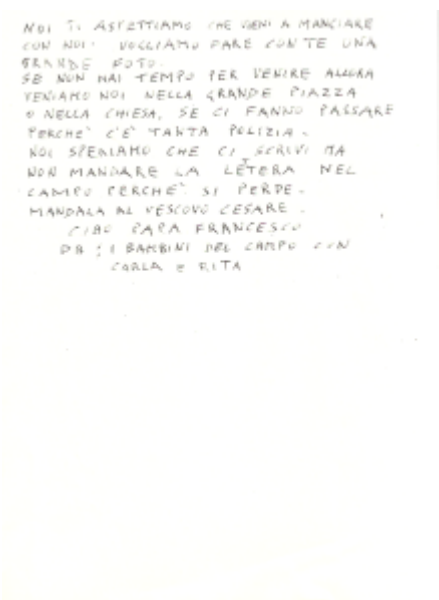 NOI TI ASPETTIAMO CHE VIENI A MANGIARE
CON NOI. VOGLIAMO FARE CON TE UNA
GRANDE FOTO.
SE NON HAI TEMPO PER VENIRE ALLORA
VENIAMO NOI NELLA GRANDE PIAZZA
O NELLA CHIESA, SE CI FANNO PASSARE
PERCHE' C'E' TANTA POLIZIA.
NOI SPERIAMO CHE CI SCRIVI MA
NON MANDARE LA LETTERA NEL
CAMPO PERCHE' SI PERDE.
MANDALA AL VESCOVO CESARE.
CIAO PAPA FRANCESCO
DA: I BAMBINI DEL CAMPO CON
CARLA E RITA